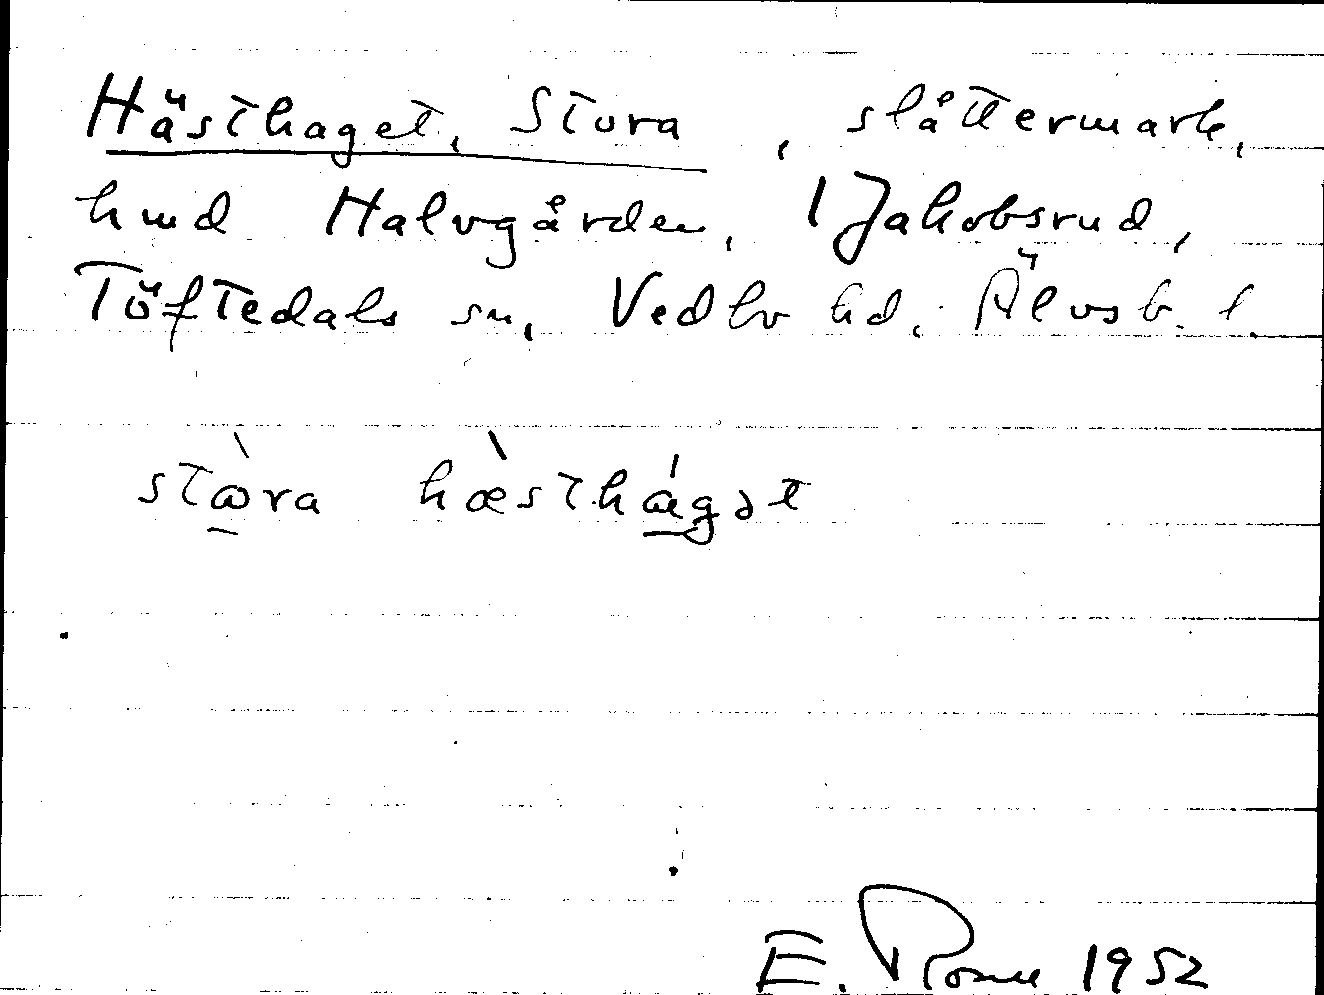 Hästhaget, Stora, slåttermark,
hmd Halvgården, 1 Jakobsrud,
Töftedals sn, Vedbo hd, Älvsb. l.
stɷ̀ra hæ̀sthágət
E. 1952